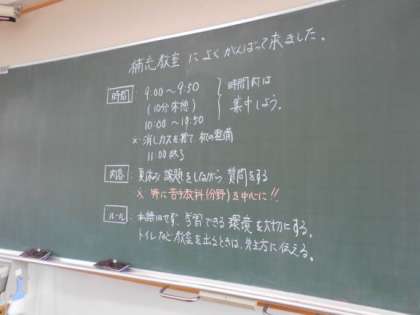 補充教室によくがんばって来ました。
時間 9:00〜9:50 時間内は
(10分休憩) 集中しよう。
10:00〜10:50
※消しカスを捨て 机の整備
11:00終了
内容 夏休み課題をしながら質問をする
※特に苦手教科(分野)を中心に!!
ルール 私語はせず、学習できる環境を大切にする。
トイレなど教室を出るときは、先生方に伝える。